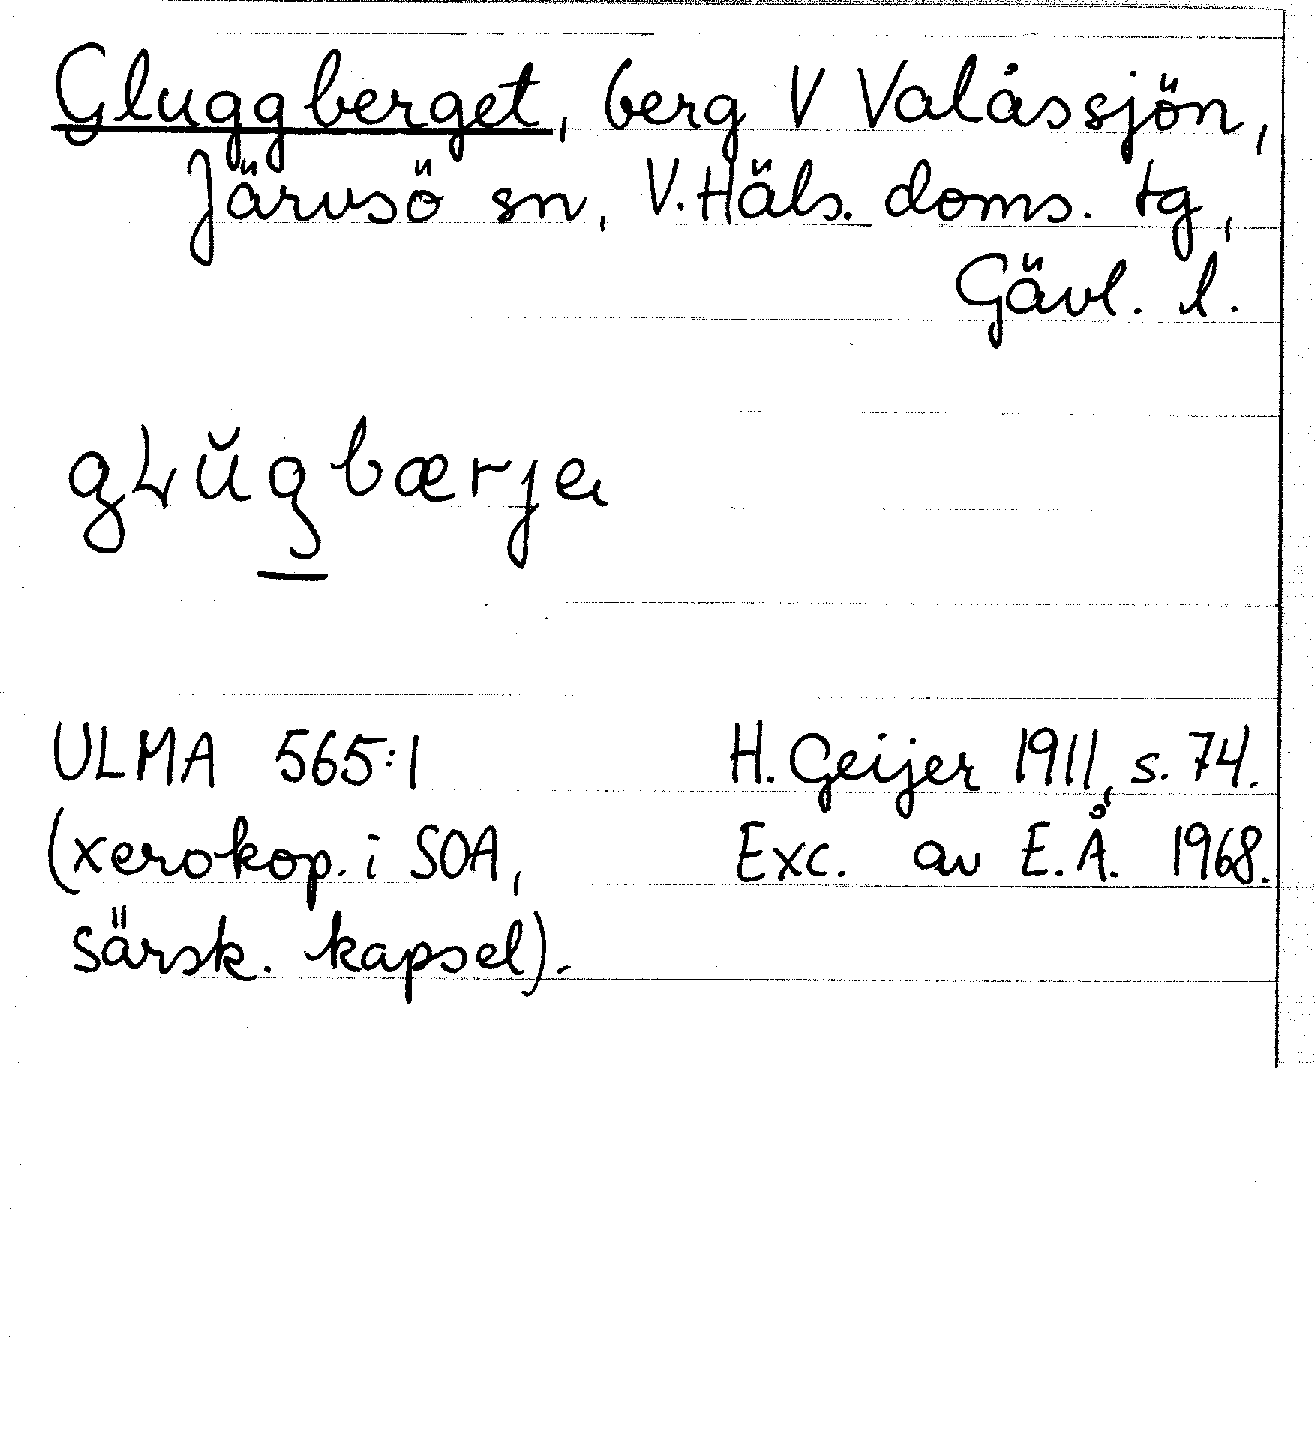 Gluggberget, berg V Valåssjön,
Järvsö sn, V. Häls. doms. tg,
Gävl. l.
gLŭgbærjeɩ
ULMA 565:1
H. Geijer 1911, s. 74.
(xerokop. i SOA,
Exc. av E.Å. 1968.
särsk. kapsel).